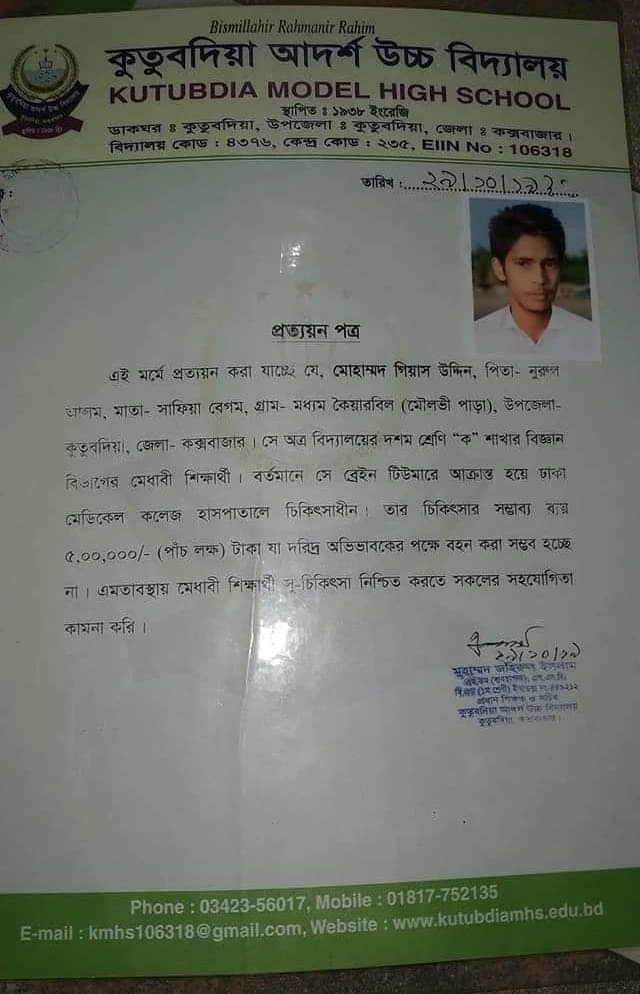 Bismillahir Rahmanir Rahim
কুতুবদিয়া আদর্শ উচ্চ বিদ্যালয়
KUTUBDIA MODEL HIGH SCHOOL
স্থাপিত ঃ ১৯৩৮ ইংরেজি
ডাকঘর ঃ কুতুবদিয়া, উপজেলা ঃ কুতুবদিয়া, জেলা ঃ কক্সবাজার ।
বিদ্যালয় কোড : ৪৩৭৬, কেন্দ্র কোড : ২৩৫, EIIN No : 106318
তারিখ :
প্রত্যয়ন পত্র
এই মর্মে প্রত্যয়ন করা যাচ্ছে যে, মোহাম্মদ গিয়াস উদ্দিন, পিতা- নুরুল
আলম, মাতা- সাফিয়া বেগম, গ্রাম- মধ্যম কৈয়ারবিল (মৌলভী পাড়া), উপজেলা-
কুতুবদিয়া, জেলা- কক্সবাজার । সে অত্র বিদ্যালয়ের দশম শ্রেণি “ক” শাখার বিজ্ঞান
বিভাগের মেধাবী শিক্ষার্থী । বর্তমানে সে ব্রেইন টিউমারে আক্রান্ত হয়ে ঢাকা
মেডিকেল কলেজ হাসপাতালে চিকিৎসাধীন । তার চিকিৎসার সম্ভাব্য ব্যয়
৫,০০,০০০/- (পাঁচ লক্ষ) টাকা যা দরিদ্র অভিভাবকের পক্ষে বহন করা সম্ভব হচ্ছে
না । এমতাবস্থায় মেধাবী শিক্ষার্থী সু-চিকিৎসা নিশ্চিত করতে সকলের সহযোগিতা
কামনা করি ।
২৯/১০/১৯
মুহাম্মদ জহিরুল ইসলাম
প্রধান শিক্ষক ও সচিব
কুতুবদিয়া আদর্শ উচ্চ বিদ্যালয়
কুতুবদিয়া, কক্সবাজার ।
Phone : 03423-56017, Mobile : 01817-752135
E-mail : kmhs106318@gmail.com, Website : www.kutubdiamhs.edu.bd